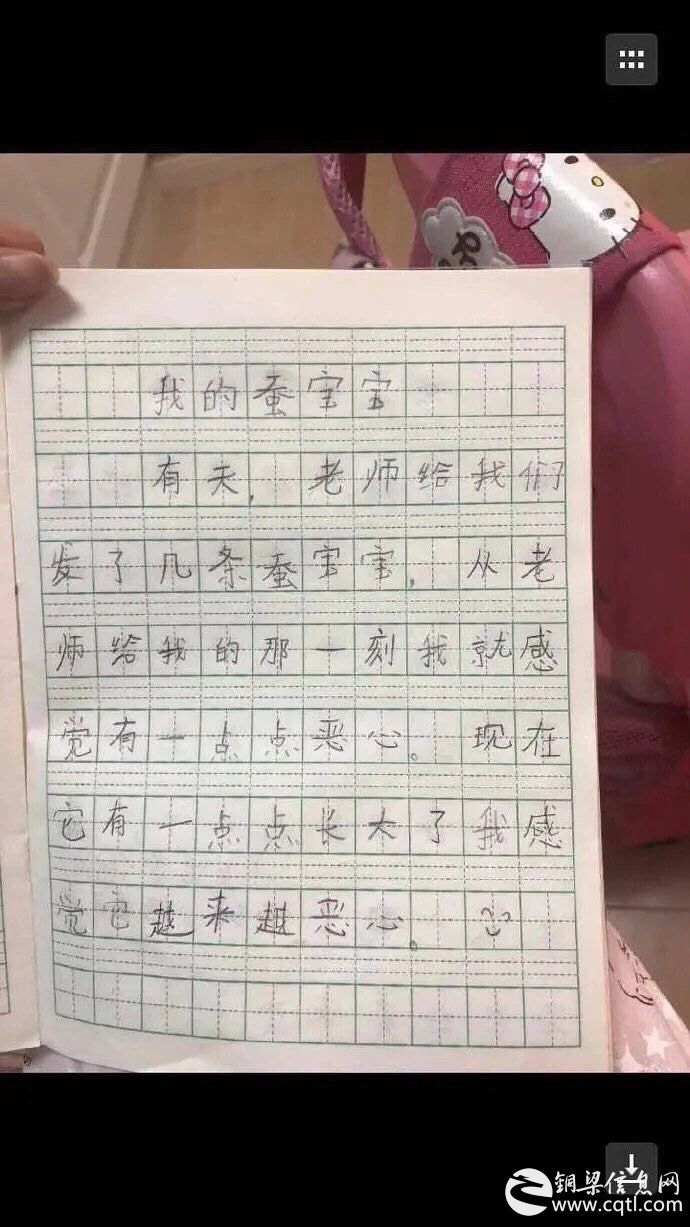 我的蚕宝宝
有天，老师给我们
发了几条蚕宝宝，从老
师给我的那一刻我就感
觉有一点点恶心。现在
它有一点点长大了我感
觉它越来越恶心。
铜梁信息网
www.cqtl.com